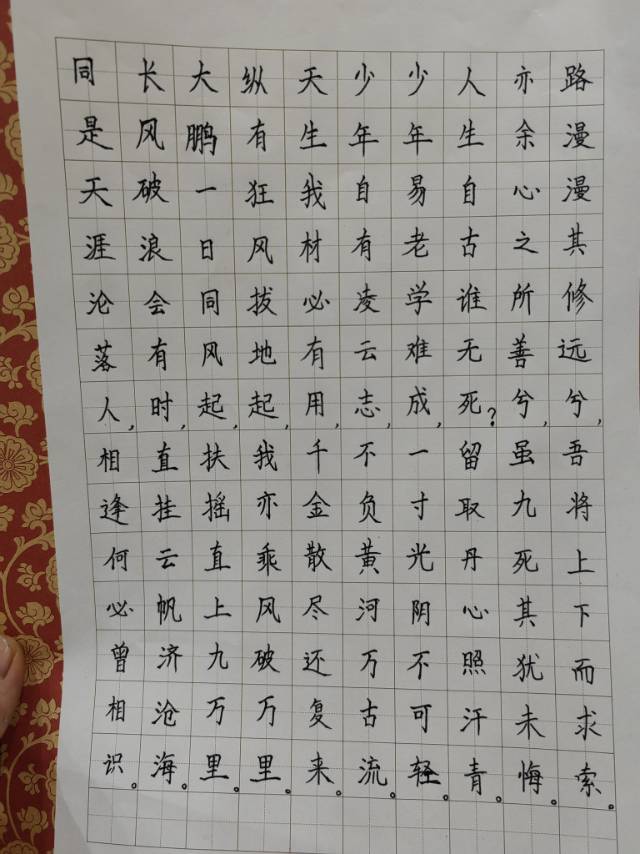 路漫漫其修远兮,吾将上下而求索。
亦余心之所善兮,虽九死其犹未悔。
人生自古谁无死?留取丹心照汗青。
少年易老学难成,一寸光阴不可轻。
少年自有凌云志,不负黄河万古流。
天生我材必有用,千金散尽还复来。
纵有狂风拔地起,我亦乘风破万里。
大鹏一日同风起,扶摇直上九万里。
长风破浪会有时,直挂云帆济沧海。
同是天涯沦落人,相逢何必曾相识。